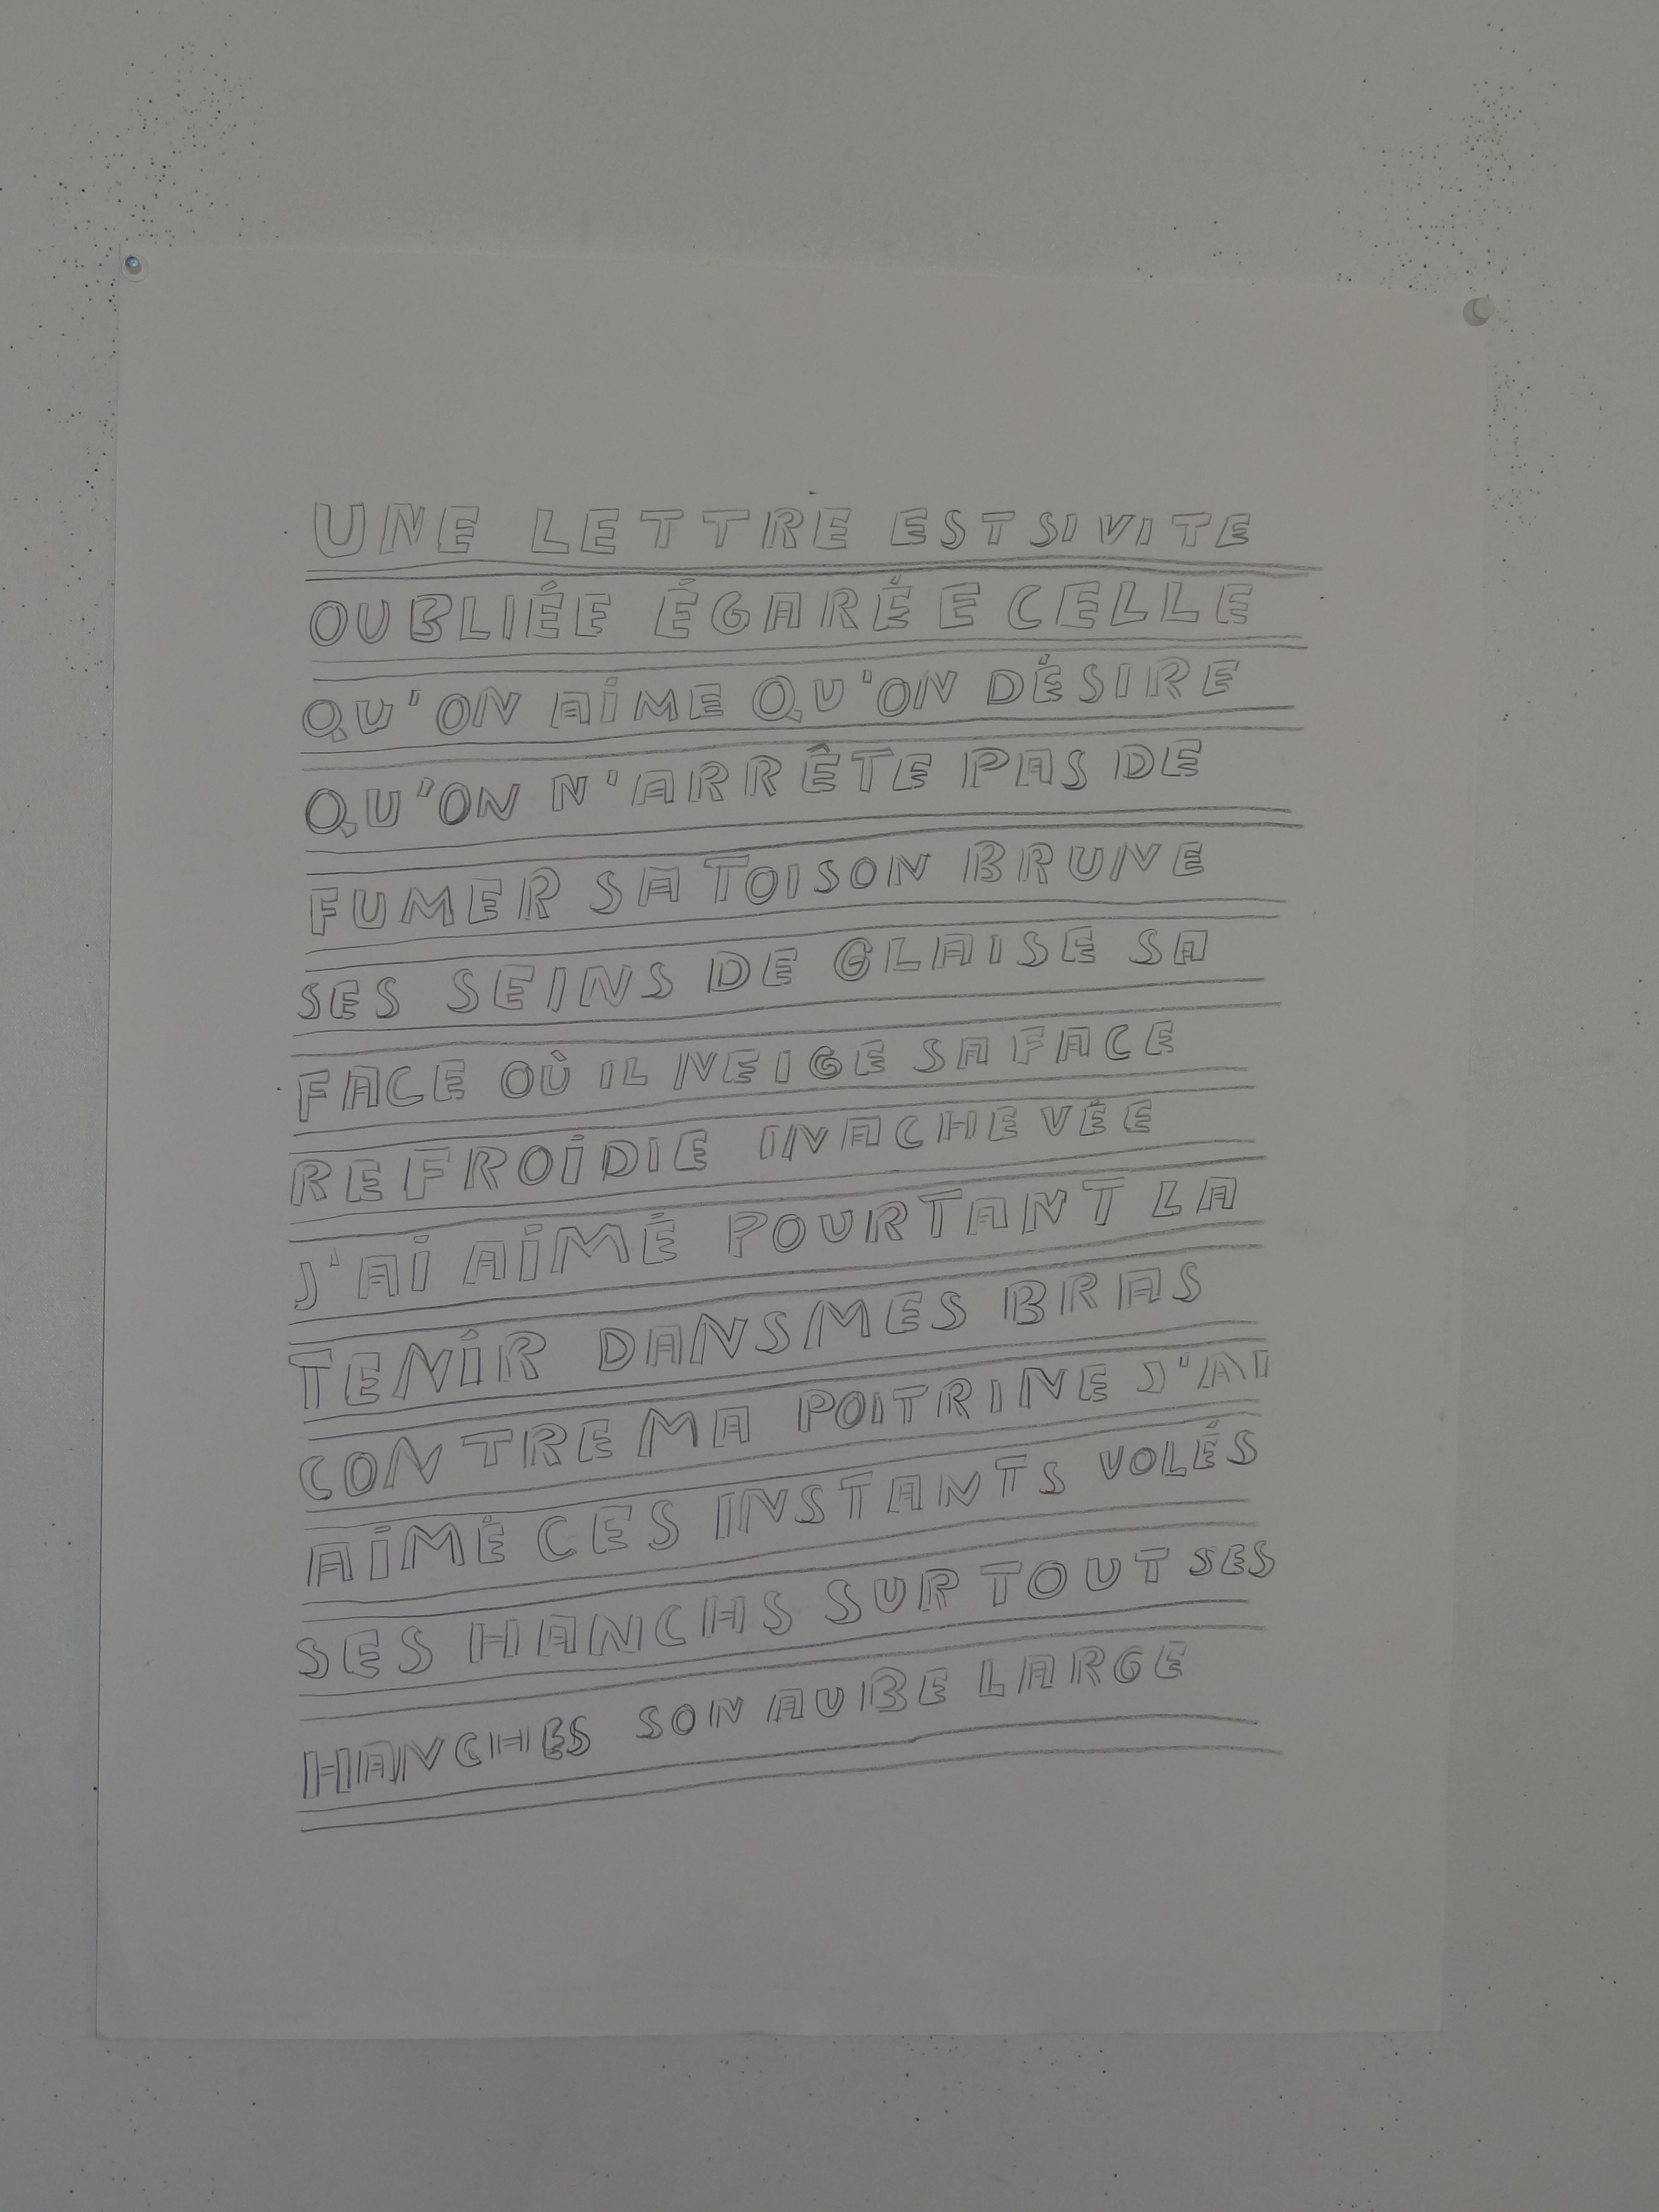 UNE LETTRE EST SI VITE
OUBLIÉE ÉGARÉE CELLE
QU'ON AIME QU'ON DÉSIRE
QU'ON N'ARRÊTE PAS DE
FUMER SA TOISON BRUNE
SES SEINS DE GLAISE SA
FACE OÙ IL NEIGE SA FACE
REFROIDIE INACHEVÉE
J'AI AIMÉ POURTANT LA
TENIR DANS MES BRAS
CONTRE MA POITRINE J'AI
AIMÉ CES INSTANTS VOLÉS
SES HANCHS SURTOUT SES
HANCHES SON AUBE LARGE